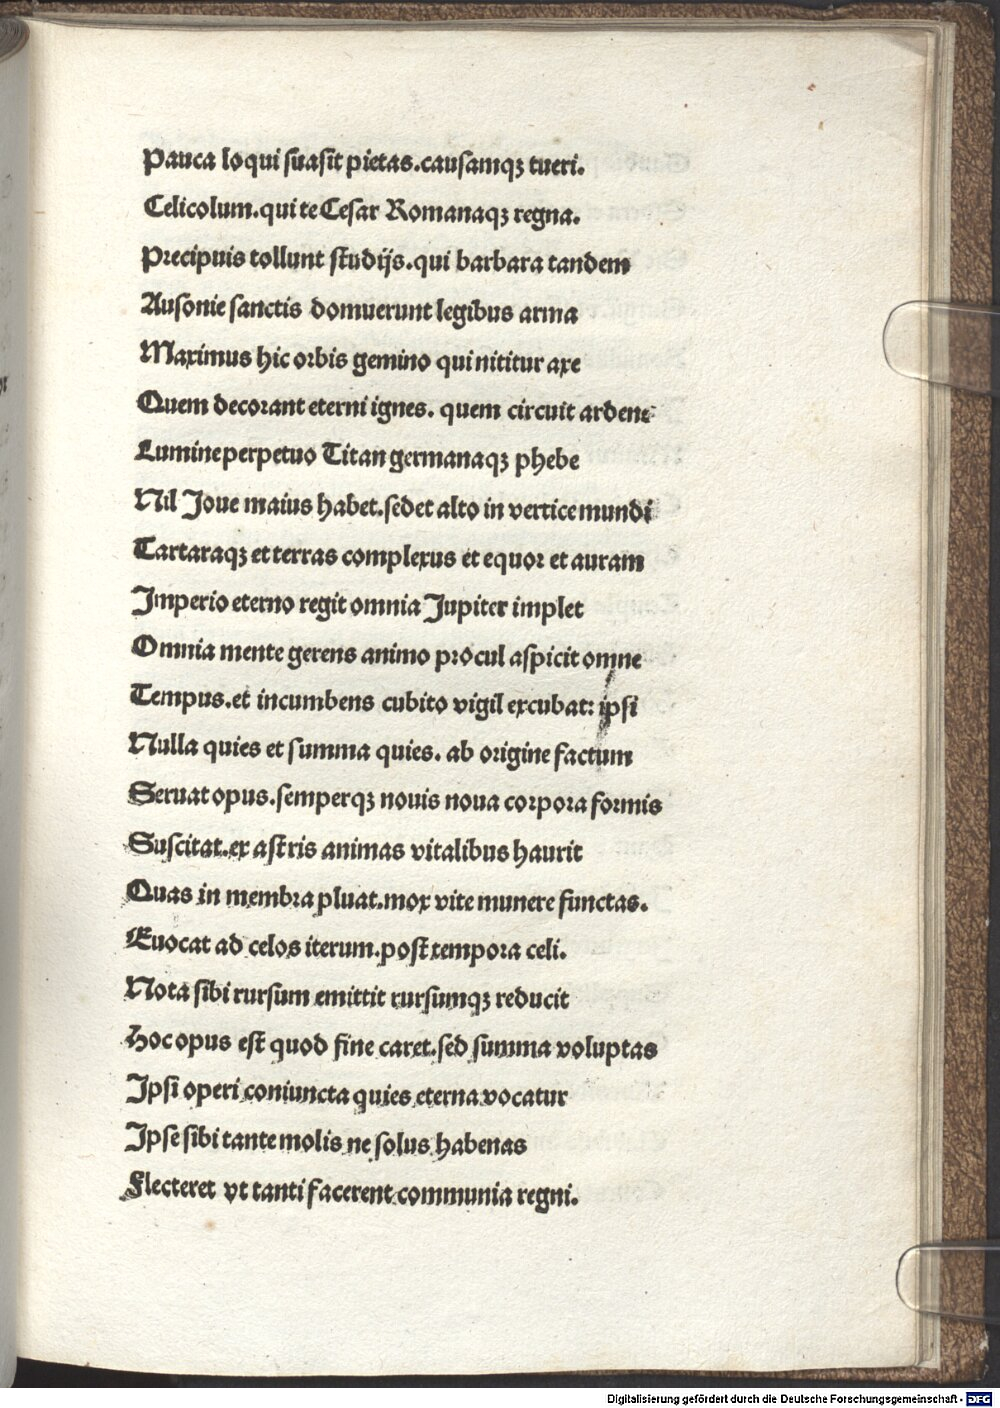 Pauca loqui suasit pietas.causamqꝫ tueri.
Celicolum.qui te Cesar Romanaqꝫ regna.
Precipuis tollunt studijs.qui barbara tandem
Ausonie sanctis domuerunt legibus arma
Maximus hic orbis gemino qui nititur axe
Quem decorant eterni ignes. quem circuit ardens
Lumine perpetuo Titan germanaqꝫ phebe
Nil Joue maius habet.sedet alto in vertice mundi
Tartaraqꝫ et terras complexus et equor et auram
Imperio eterno regit omnia Jupiter implet
Omnia mente gerens animo procul aspicit omne
Tempus.et incumbens cubito vigil excubat: ipsi
Nulla quies et summa quies. ab origine factum
Seruat opus.semperqꝫ nouis noua corpora formis
Suscitat.ex astris animas vitalibus haurit
Quas in membra pluat.mox vite munere functas.
Euocat ad celos iterum.post tempora celi.
Nota sibi rursum emittit rursumqꝫ reducit
Hoc opus est quod fine caret.sed summa voluptas
Ipsi operi coniuncta quies eterna vocatur
Ipse sibi tante molis ne solus habenas
Flecteret vt tanti facerent communia regni.
Digitalisierung gefördert durch die Deutsche Forschungsgemeinschaft - DFG